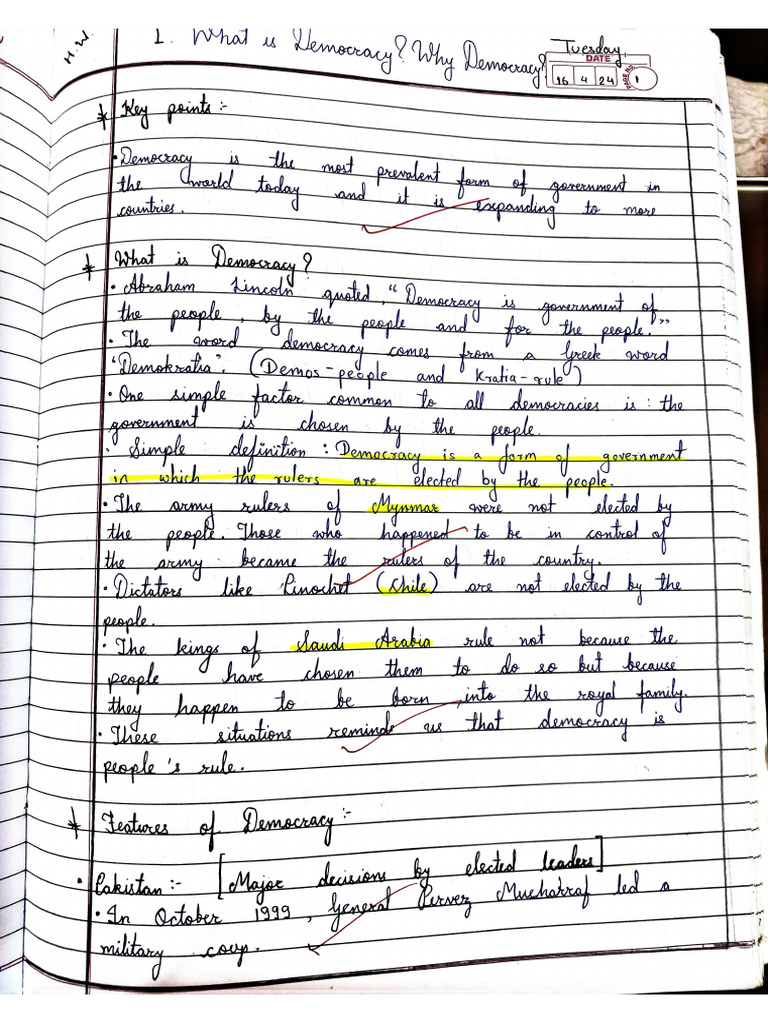 H.W.
1. What is Democracy? Why Democracy?
Tuesday,
DATE
16 4 24
PAGE NO. 1
* Key points :-
• Democracy is the most prevalent form of government in
the world today and it is expanding to more
countries.
* What is Democracy?
• Abraham Lincoln quoted, "Democracy is government of
the people, by the people and for the people."
• The word democracy comes from a Greek word
"Demokratia". (Demos-people and Kratia-rule)
• One simple factor common to all democracies is: the
government is chosen by the people.
• Simple definition: Democracy is a form of government
in which the rulers are elected by the people.
• The army rulers of Mynmar were not elected by
the people. Those who happened to be in control of
the army became the rulers of the country.
• Dictators like Pinochet (Chile) are not elected by the
people.
• The kings of Saudi Arabia rule not because the
people have chosen them to do so but because
they happen to be born into the royal family.
• These situations reminds us that democracy is
people's rule.
* Features of Democracy:-
• Pakistan:- [Major decisions by elected leaders]
• In October 1999, General Pervez Musharraf led a
military coup.